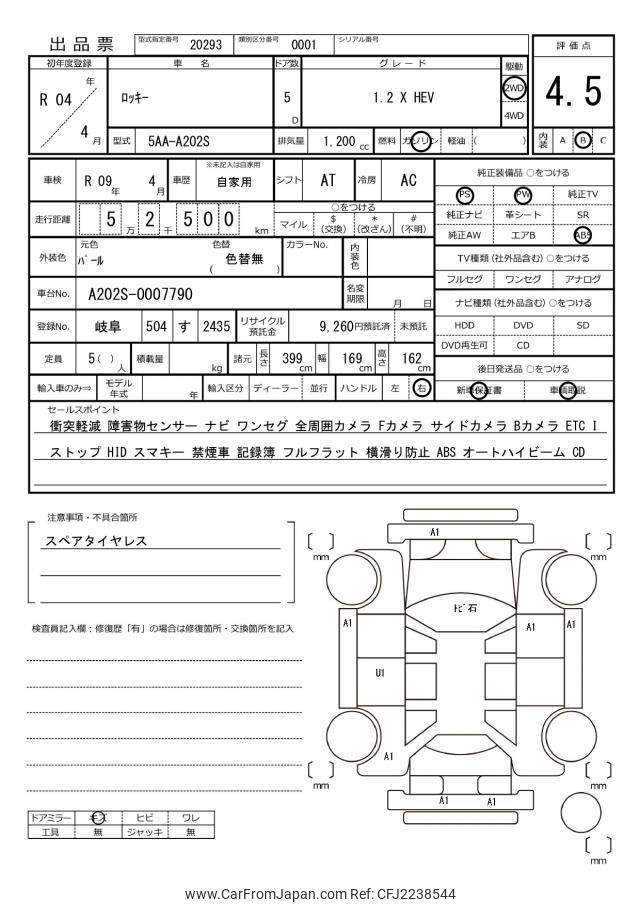 出品票 型式指定番号 20293 類別区分番号 0001 シリアル番号
評価点
4.5
内装 A B C
初年度登録 車名 ドア数 グレード 駆動
R 04 年 4 月 ロッキー 5 D 1.2 X HEV 2WD 4WD
型式 5AA-A202S 排気量 1,200 cc 燃料 ガソリン 軽油 ( )
車検 R 09 年 4 月 車歴 ※未記入は自家用 自家用 シフト AT 冷房 AC
走行距離 5 2 万 千 5 0 0 km
○をつける
マイル $(交換) *(改ざん) #(不明)
外装色 元色 パール 色替 ( 色替無 ) カラーNo. 内装色
車台No. A202S-0007790 名変期限 月 日
登録No. 岐阜 504 す 2435 リサイクル預託金 9,260円預託済 未預託
定員 5 ( ) 人 積載量 kg 諸元 長さ 399 cm 幅 169 cm 高さ 162 cm
輸入車のみ⇒ モデル年式 年 輸入区分 ディーラー ・ 並行 ハンドル 左 右
純正装備品 ○をつける
PS PW 純正TV
純正ナビ 革シート SR
純正AW エアB ABS
TV種類 (社外品含む) ○をつける
フルセグ ワンセグ アナログ
ナビ種類 (社外品含む) ○をつける
HDD DVD SD
DVD再生可 CD
後日発送品 ○をつける
新車保証書 車輌取説
セールスポイント
衝突軽減 障害物センサー ナビ ワンセグ 全周囲カメラ Fカメラ サイドカメラ Bカメラ ETC I
ストップ HID スマキー 禁煙車 記録簿 フルフラット 横滑り防止 ABS オートハイビーム CD
注意事項・不具合箇所
スペアタイヤレス
検査員記入欄：修復歴「有」の場合は修復箇所・交換箇所を記入
A1
mm mm
トビ石
A1 A1 A1
U1
A1
mm mm
A1 A1
mm
ドアミラー キズ ヒビ ワレ
工具 無 ジャッキ 無
www.CarFromJapan.com Ref: CFJ2238544